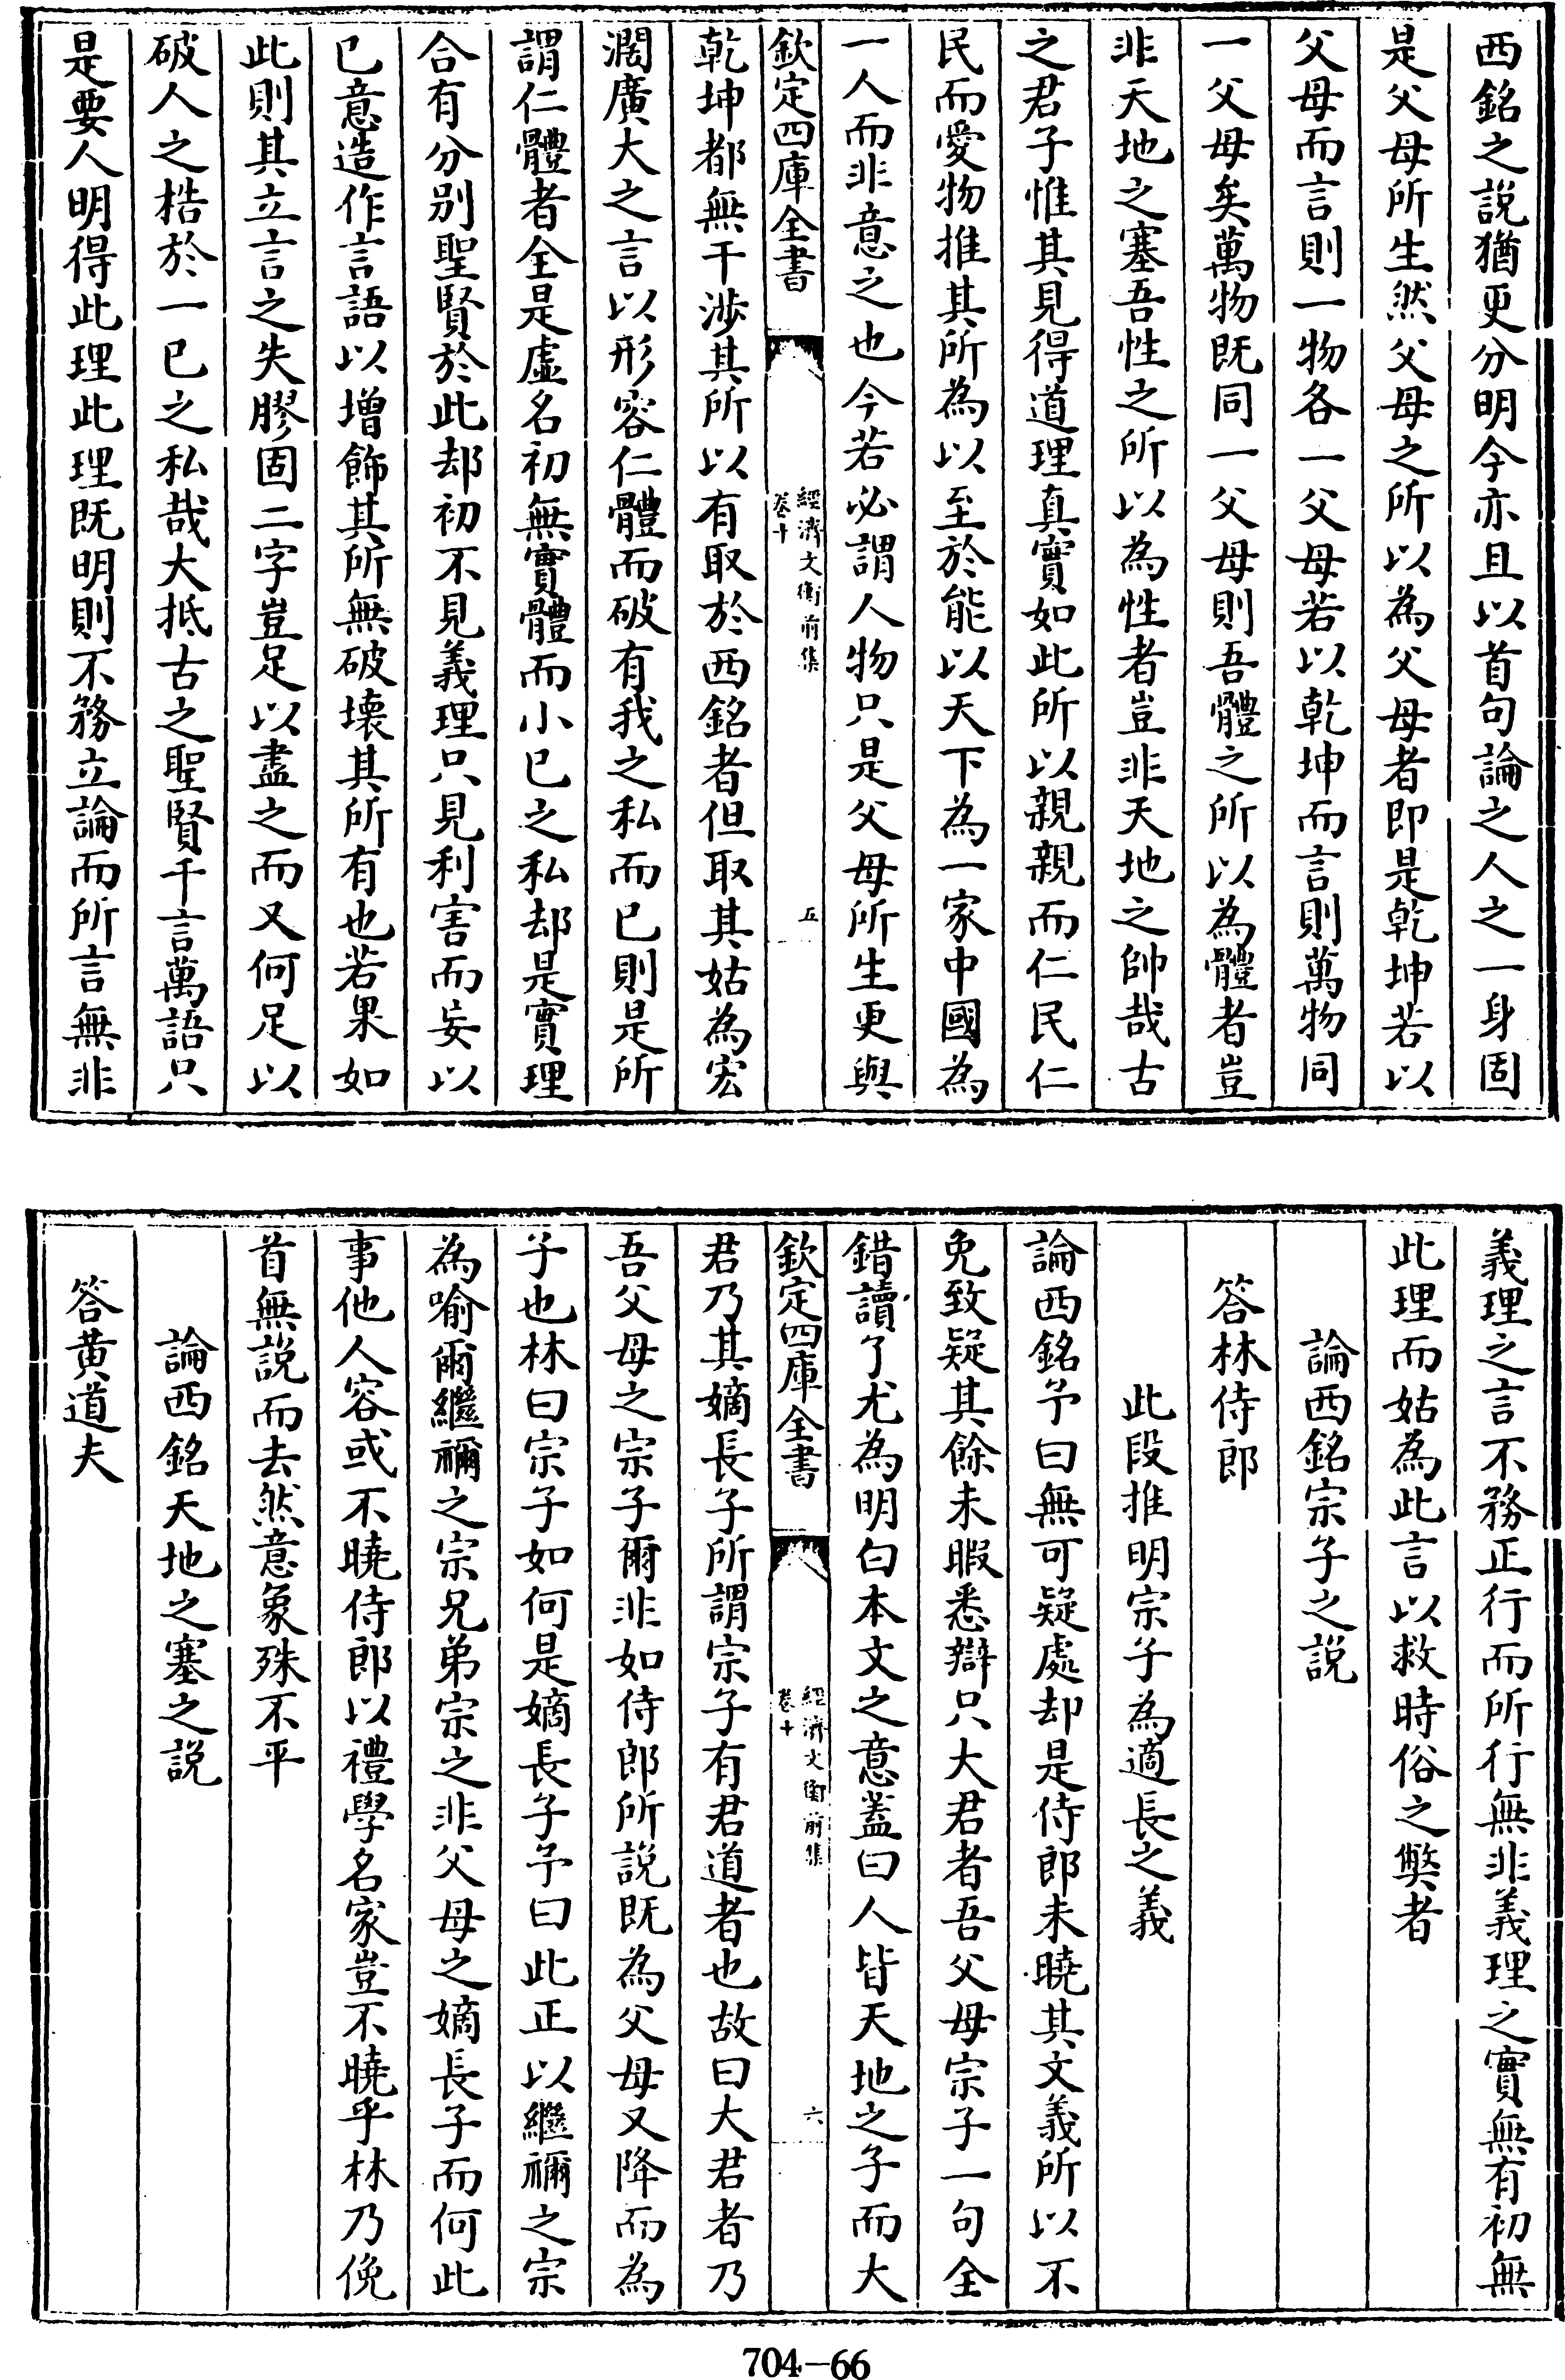 西銘之說猶更分明今亦且以首句論之人之一身固
是父母所生然父母之所以為父母者即是乾坤若以
父母而言則一物各一父母若以乾坤而言則萬物同
一父母矣萬物既同一父母則吾體之所以為體者豈
非天地之塞吾性之所以為性者豈非天地之帥哉古
之君子惟其見得道理真實如此所以親親而仁民仁
民而愛物推其所為以至於能以天下為一家中國為
一人而非意之也今若必謂人物只是父母所生更與
欽定四庫全書
經濟文衡前集
卷十
五
乾坤都無干涉其所以有取於西銘者但取其姑為宏
濶廣大之言以形容仁體而破有我之私而已則是所
謂仁體者全是虛名初無實體而小已之私却是實理
合有分别聖賢於此却初不見義理只見利害而妄以
已意造作言語以增飾其所無破壊其所有也若果如
此則其立言之失膠固二字豈足以盡之而又何足以
破人之梏於一已之私哉大抵古之聖賢千言萬語只
是要人明得此理此理既明則不務立論而所言無非
義理之言不務正行而所行無非義理之實無有初無
此理而姑為此言以救時俗之弊者
論西銘宗子之說
答林侍郎
此段推明宗子為適長之義
論西銘予曰無可疑處却是侍郎未曉其文義所以不
免致疑其餘未暇悉辯只大君者吾父母宗子一句全
錯讀了尤為明白本文之意蓋曰人皆天地之子而大
欽定四庫全書
經濟文衡前集
卷十
六
君乃其嫡長子所謂宗子有君道者也故曰大君者乃
吾父母之宗子爾非如侍郎所說既為父母又降而為
子也林曰宗子如何是嫡長子予曰此正以繼禰之宗
為喻爾繼禰之宗兄弟宗之非父母之嫡長子而何此
事他人容或不曉侍郎以禮學名家豈不曉乎林乃俛
首無說而去然意象殊不平
論西銘天地之塞之說
答黄道夫
704-66